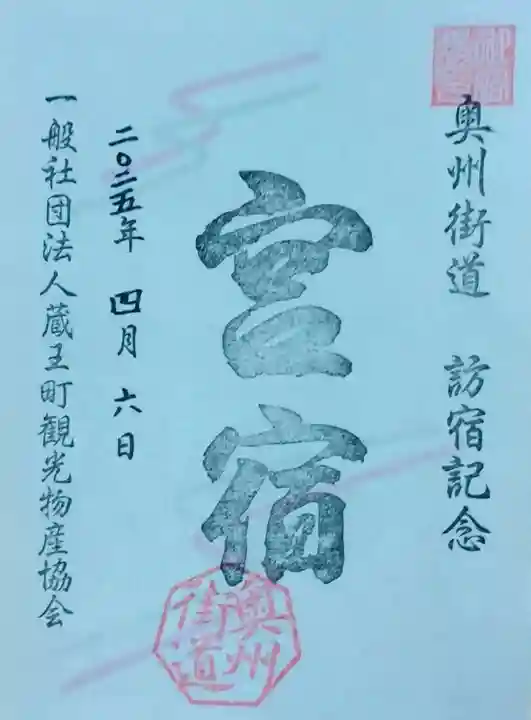 奥州街道 訪宿記念
宮宿
奥州
街道
二〇二五年 四月 六日
一般社団法人蔵王町観光物産協会